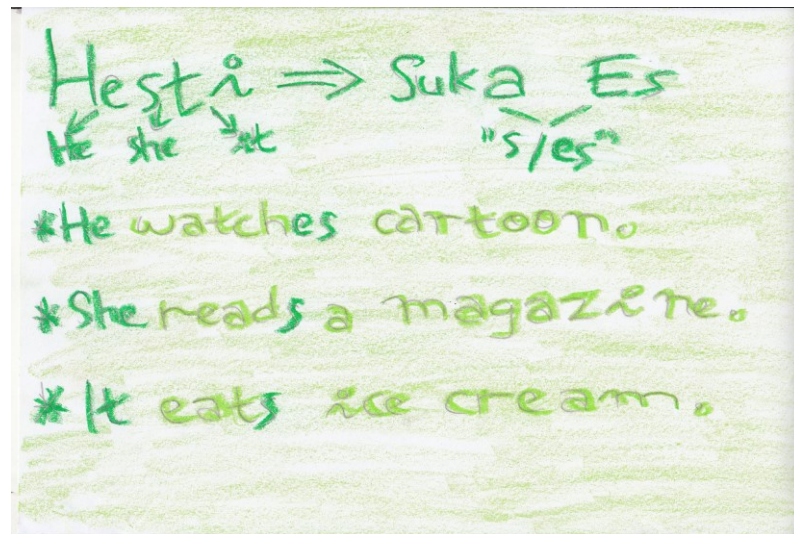 Hesti ⇒ Suka Es
He she it "s/es"
*He watches cartoon.
*She reads a magazine.
*It eats ice cream.